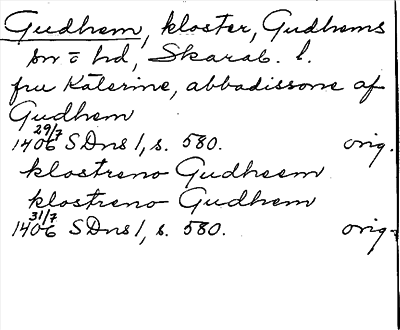 Gudhem, kloster, Gudhems
sn o hd, Skarab. l.
fru Katerine, abbadissone af
Gudhem
29/7
1406 SDns 1, s. 580. orig.
klostreno Gudheem
klostreno Gudhem
31/7
1406 SDns 1, s. 580. orig.